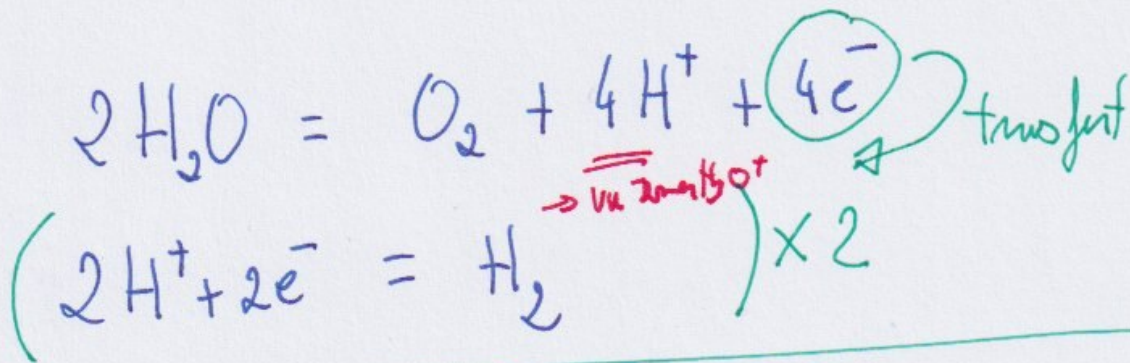 2H₂O = O₂ + 4H⁺ + 4e⁻ transfert
→ H₃O⁺
(2H⁺ + 2e⁻ = H₂) × 2